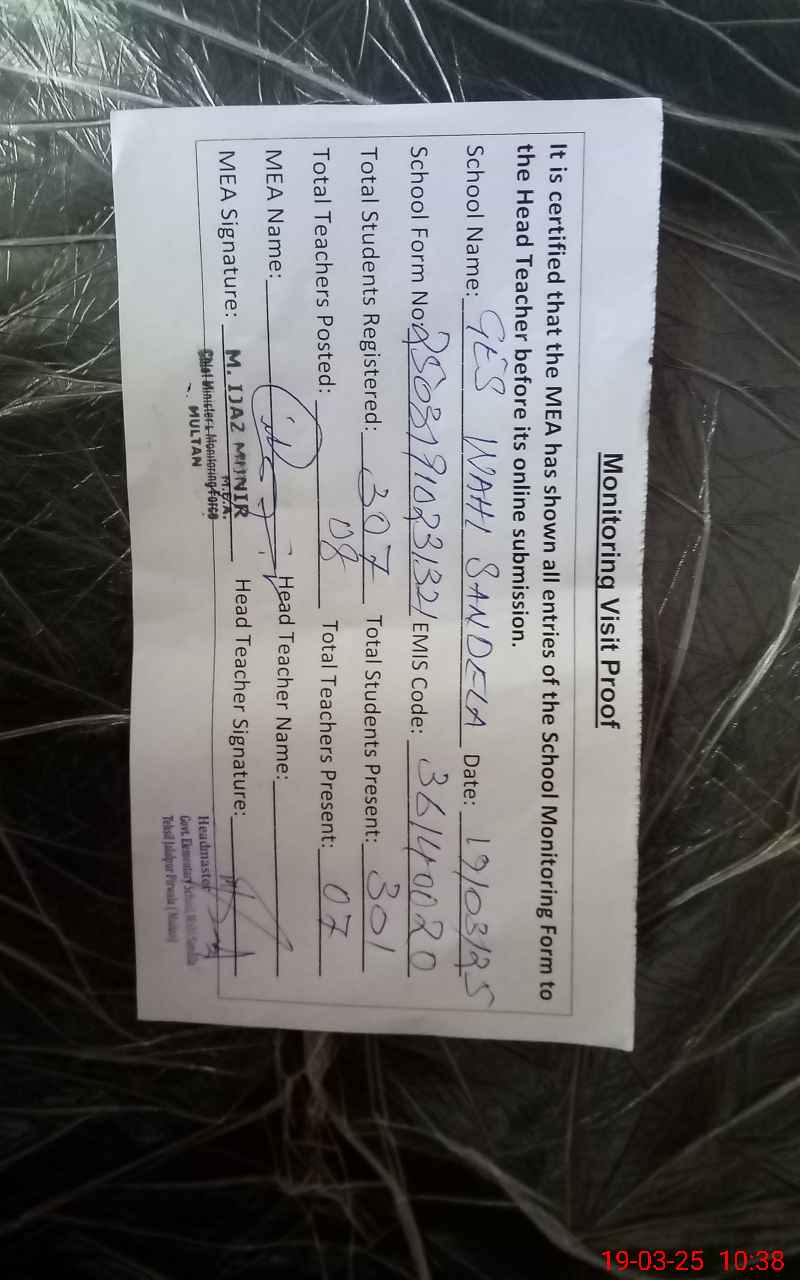 Monitoring Visit Proof
It is certified that the MEA has shown all entries of the School Monitoring Form to
the Head Teacher before its online submission.
School Name: GES WAHI SANDELA Date: 19/03/25
School Form No: EMIS Code: 36140020
Total Students Registered: 307 Total Students Present: 301
Total Teachers Posted: 08 Total Teachers Present: 07
MEA Name: Head Teacher Name:
MEA Signature: M. IJAZ MUNIR Head Teacher Signature:
M.E.A.
Chief Minister's Monitoring Force
MULTAN
Headmaster
Govt. Elementary School
Tehsil Jalalpur Pirwala (Multan)
19-03-25 10:38